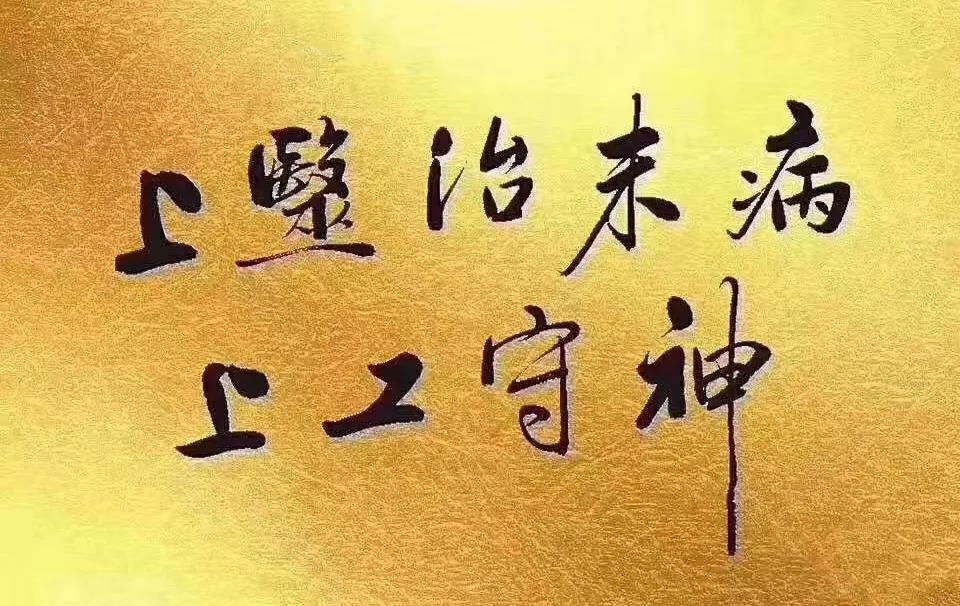 上醫治未病
上工守神